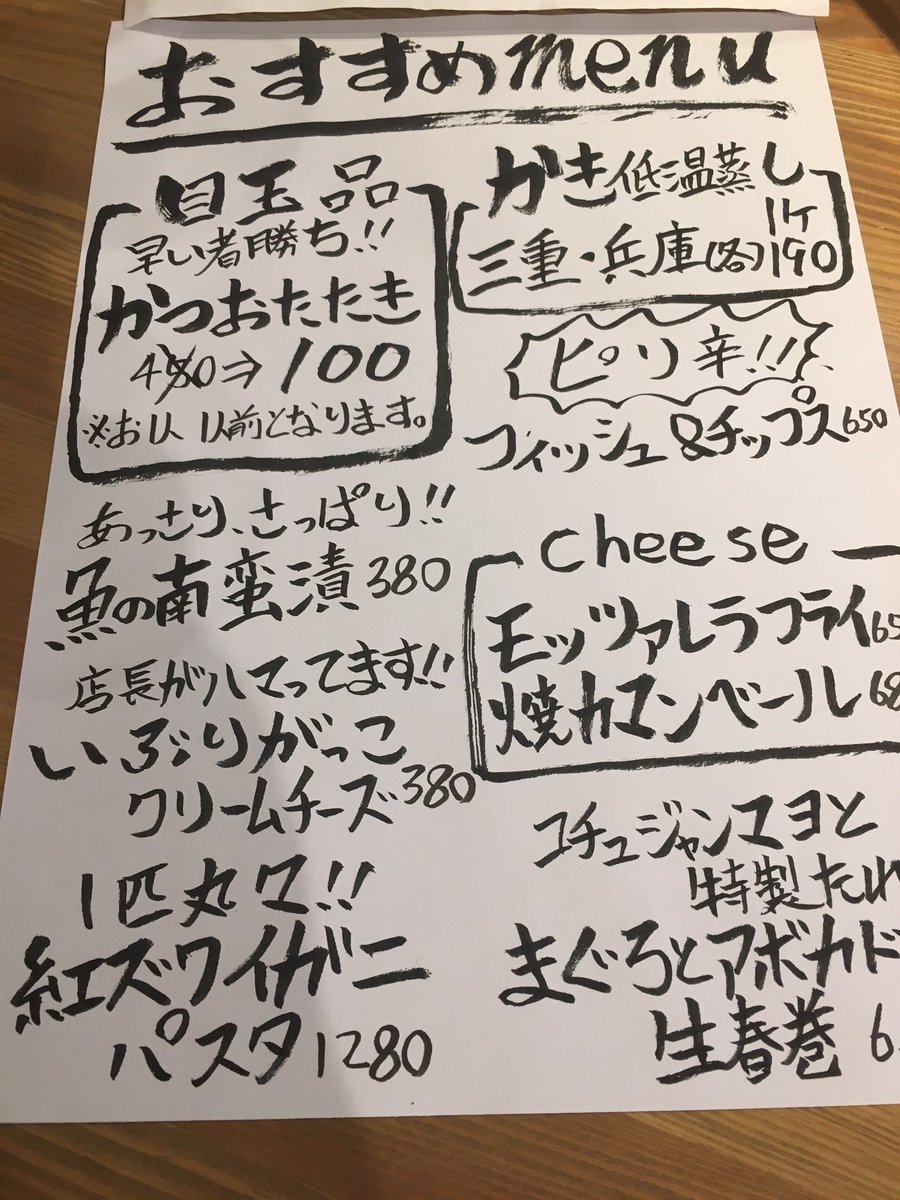 おすすめmenu
目玉品
早い者勝ち!!
かつおたたき
490⇒100
※お1人1人前となります。
あっさり、さっぱり!!
魚の南蛮漬380
店長がハマってます!!
いぶりがっこ
クリームチーズ380
1匹丸ママ!!
紅ズワイガニ
パスタ1280
かき低温蒸し
1ヶ
三重・兵庫(各)190
ピリ辛!!!
フィッシュ&チップス650
cheese
モッツァレラフライ65
焼カマンベール68
コチュジャンマヨと
特製たれ
まぐろとアボカド
生春巻 6